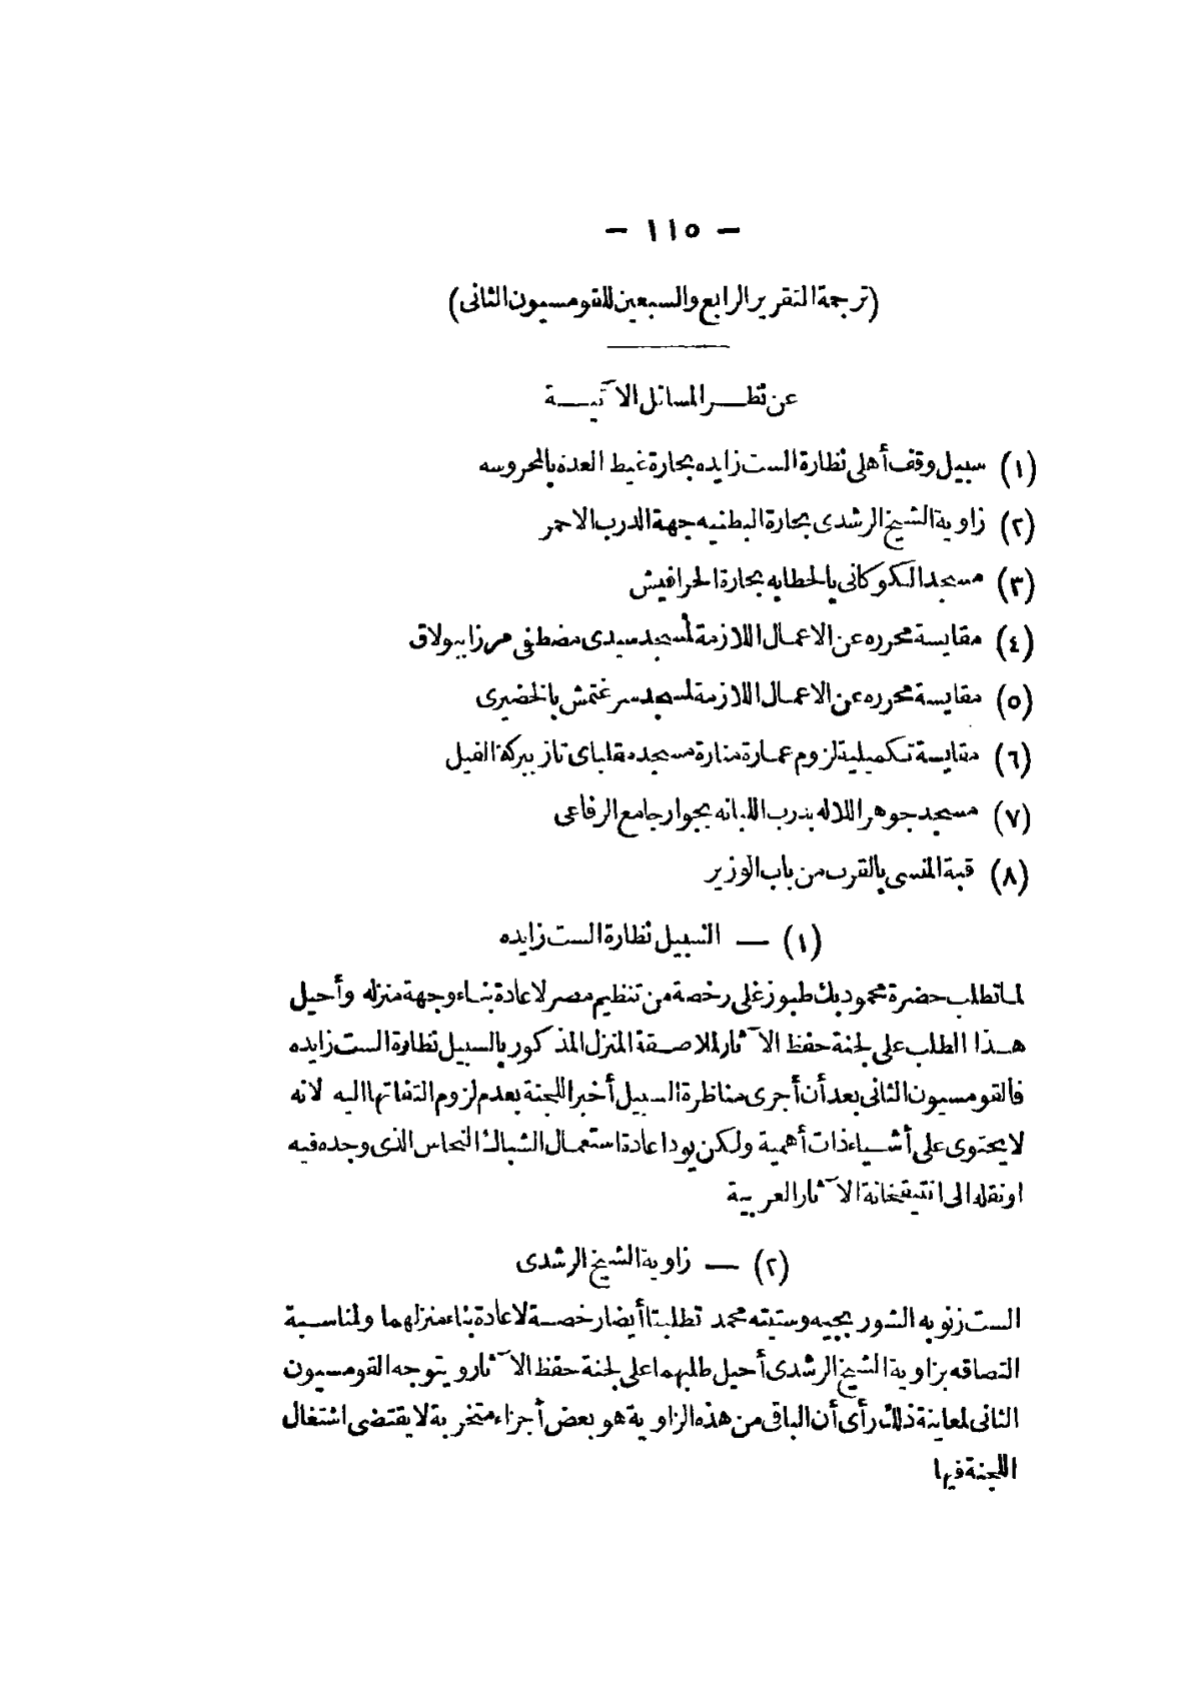 — ١١٥ —
(ترجمة التقرير الرابع والسبعين للقومسيون الثانى)
عن نظر المسائل الآتية
(١) سبيل وقف أهلى نظارة الست زايده بحارة غيط العده بالمحروسه
(٢) زاوية الشيخ الرشدى بحارة البطنيه جهة الدرب الاحمر
(٣) مسجد الكوكانى بالحطابه بحارة الحرافيش
(٤) مقايسة محرره عن الاعمال اللازمة لمسجد سيدى مصطفى ميرزا ببولاق
(٥) مقايسة محرره عن الاعمال اللازمة لمسجد سرغتمش بالخضيرى
(٦) مقايسة تكميلية لزوم عمارة منارة مسجد مقلباى تاز ببركة الفيل
(٧) مسجد جوهر اللاله بدرب اللبانه بجوار جامع الرفاعى
(٨) قبة المنسى بالقرب من باب الوزير
(١) — السبيل نظارة الست زايده
لما تطلب حضرة محمود بك طبوزغلى رخصة من تنظيم مصر لاعادة بناء وجهة منزله وأحيل
هذا الطلب على لجنة حفظ الآثار لملاصقة المنزل المذكور بالسبيل نظارة الست زايده
فالقومسيون الثانى بعد أن أجرى مناظرة السبيل أخبر اللجنة بعدم لزوم التفاتها اليه لانه
لا يحتوى على أشياء ذات أهمية ولكن يود اعادة استعمال الشباك النحاس الذى وجده فيه
او نقله الى انتيقخانة الآثار العربية
(٢) — زاوية الشيخ الرشدى
الست زنوبه الشوربجيه وستيته محمد تطلبتا أيضا رخصة لاعادة بناء منزلهما ولمناسبة
التصاقه بزاوية الشيخ الرشدى أحيل طلبهما على لجنة حفظ الآثار وبتوجه القومسيون
الثانى لمعاينة ذلك رأى أن الباقى من هذه الزاوية هو بعض أجزاء متخربة لا يقتضى اشتغال
اللجنة فيها